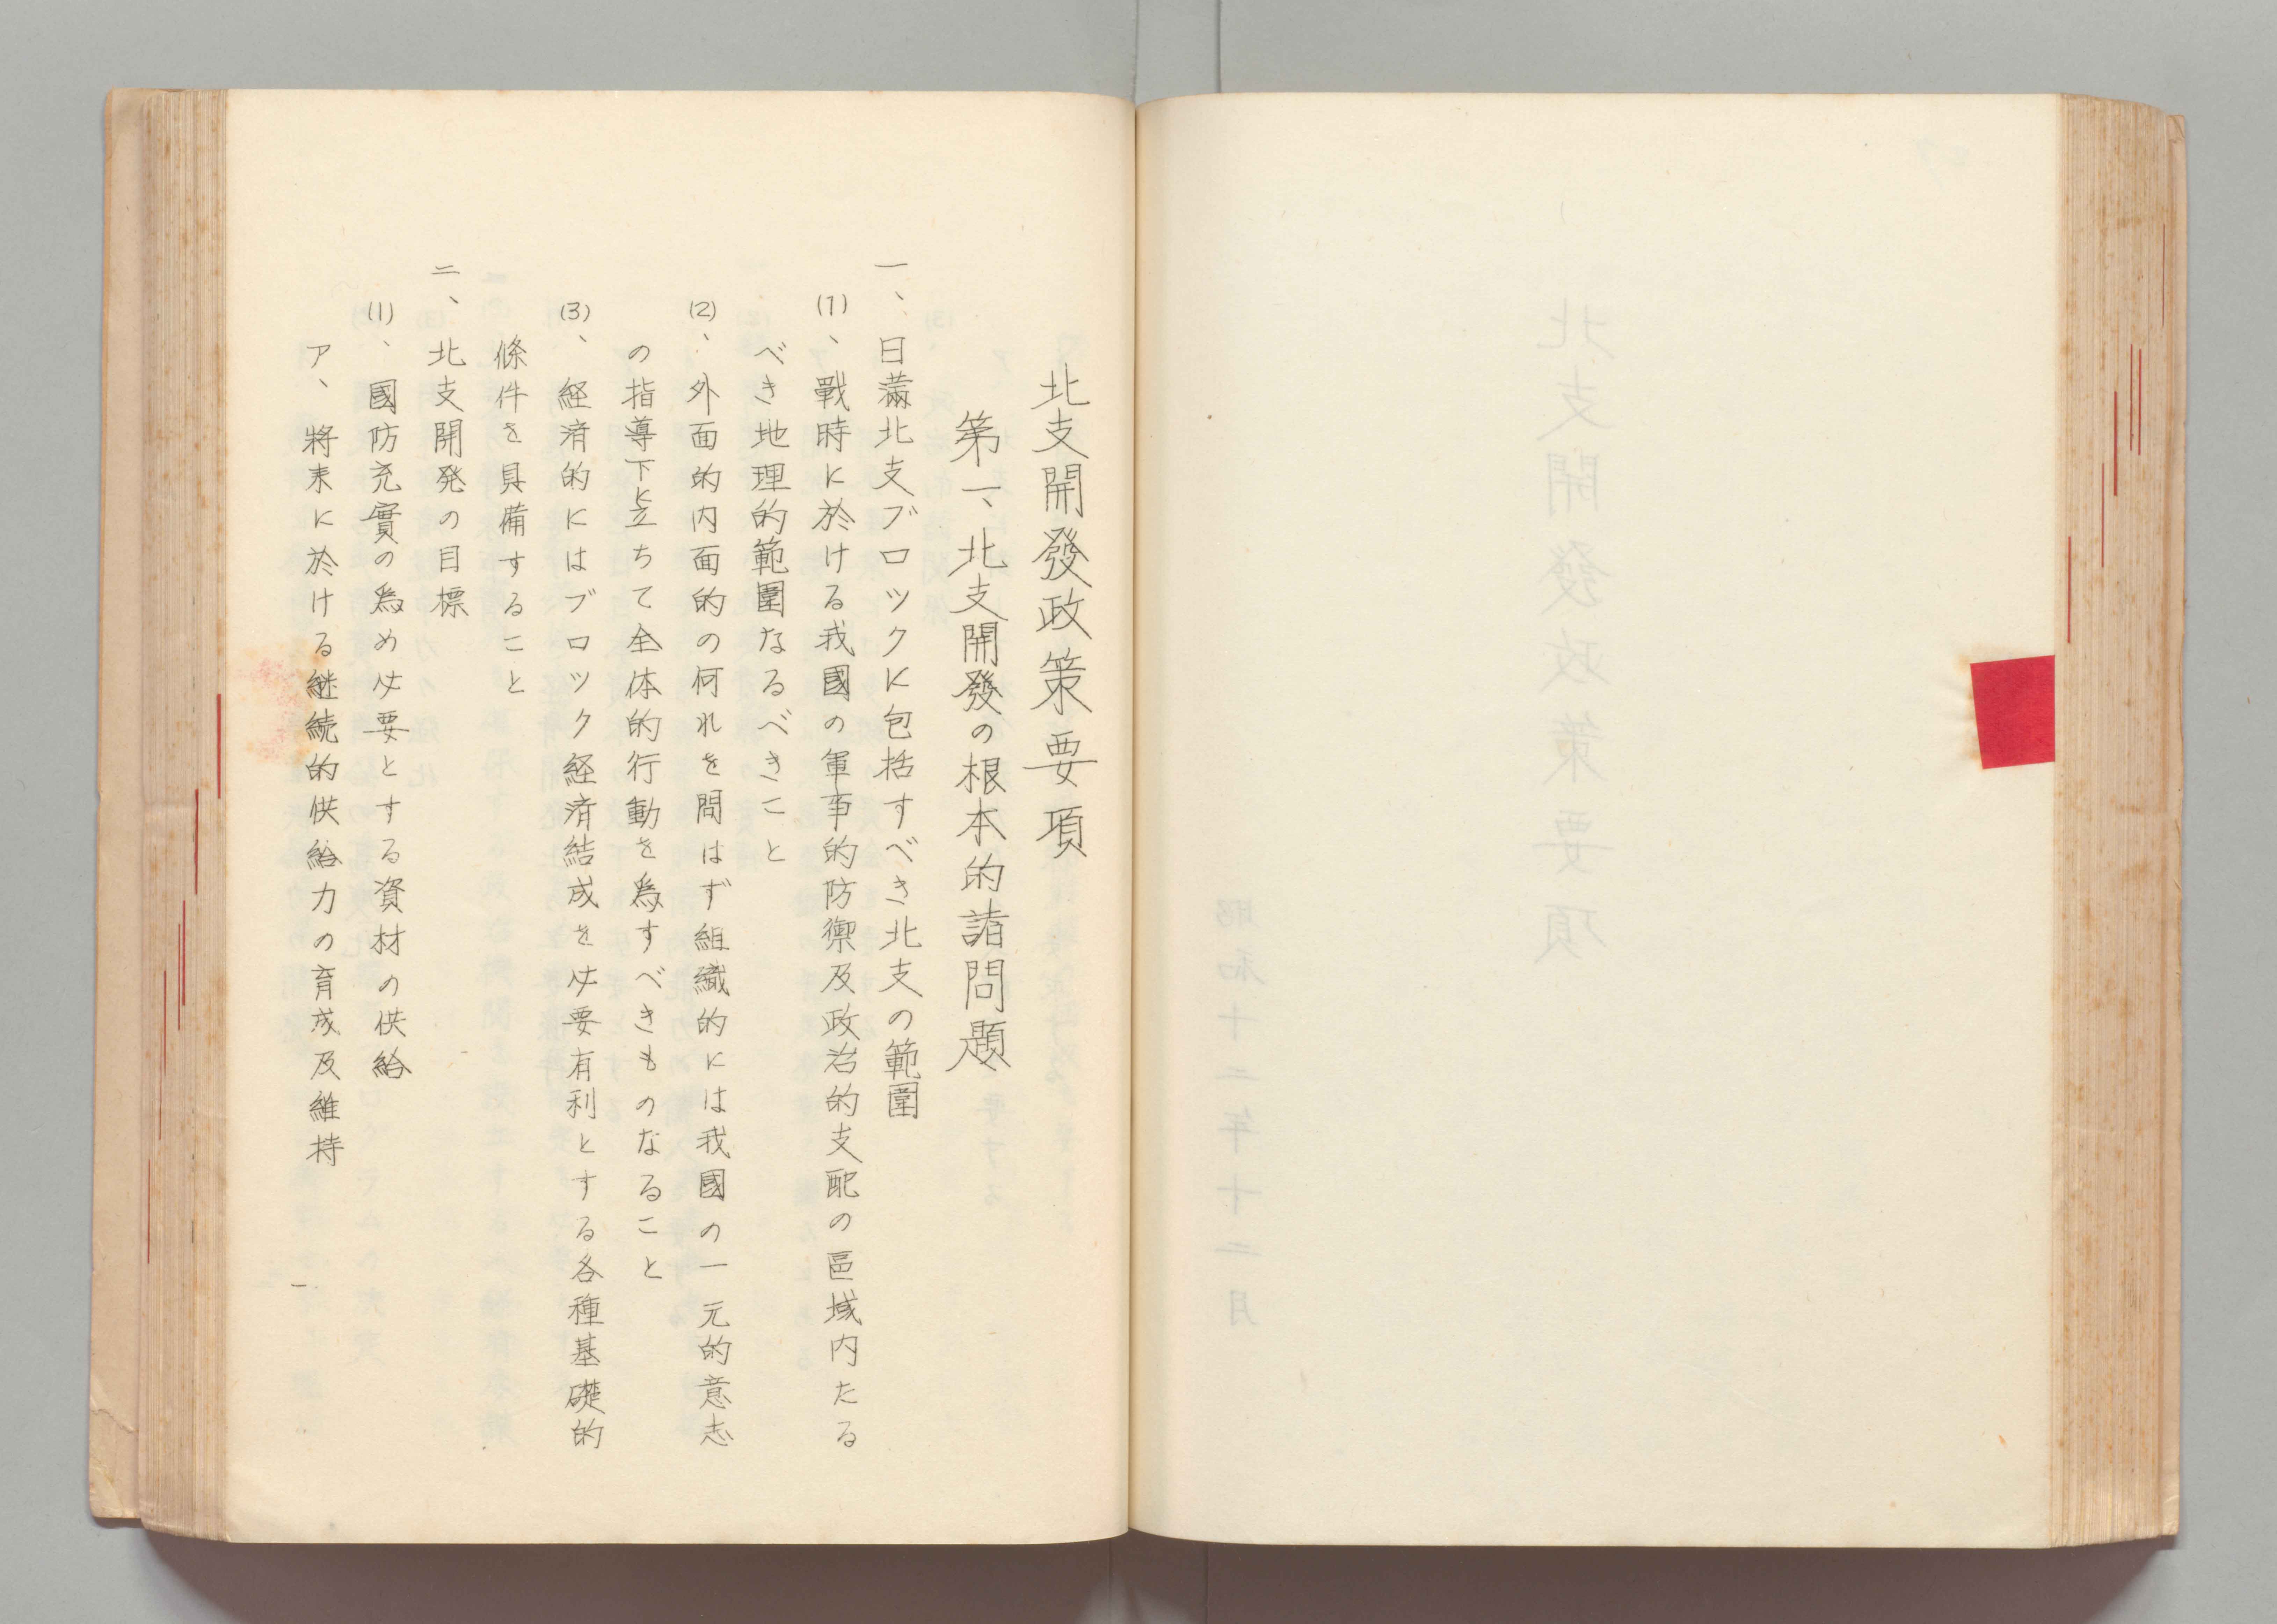 北支開發政策要項
第一、北支開發の根本的諸問題
一、日滿北支ブロックに包括すべき北支の範圍
(1)、戰時に於ける我國の軍事的防禦及政治的支配の區域内たる
べき地理的範圍なるべきこと
(2)、外面的内面的の何れを問はず組織的には我國の一元的意志
の指導下に立ちて全体的行動を爲すべきものなること
(3)、経済的にはブロック経済結成を必要有利とする各種基礎的
條件を具備すること
二、北支開発の目標
(1)、國防充實の爲め必要とする資材の供給
ア、將来に於ける継続的供給力の育成及維持
一